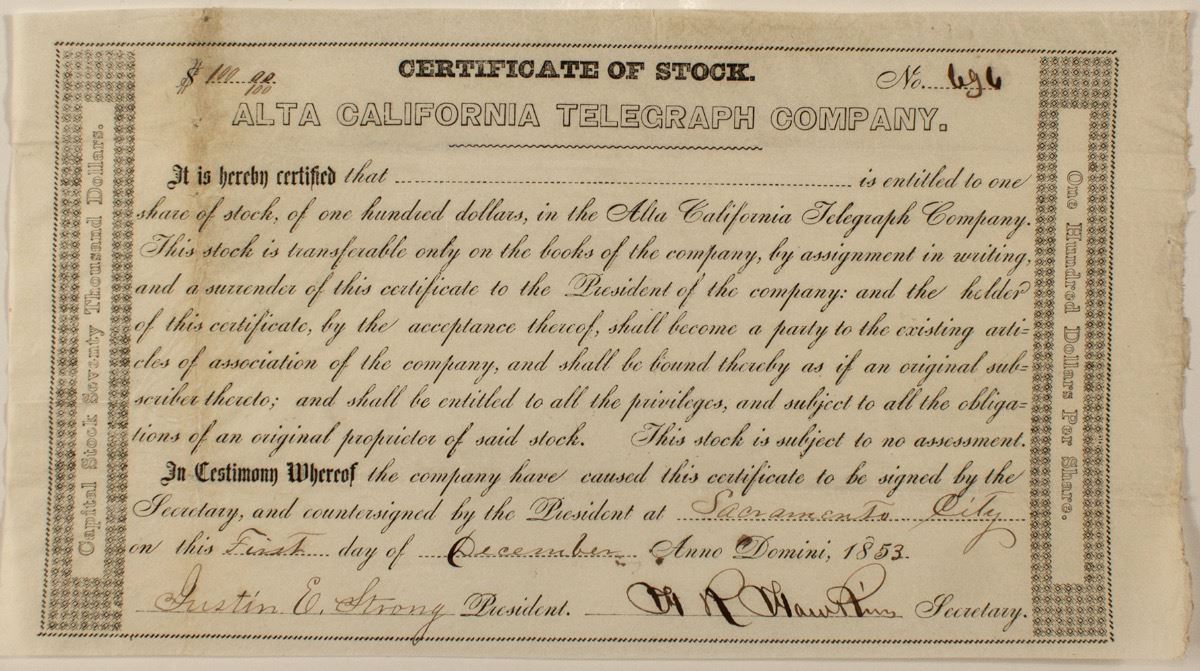 $ 100 00/100
CERTIFICATE OF STOCK.
No. 696
ALTA CALIFORNIA TELEGRAPH COMPANY.
It is hereby certified that is entitled to one
share of stock, of one hundred dollars, in the Alta California Telegraph Company.
This stock is transferable only on the books of the company, by assignment in writing,
and a surrender of this certificate to the President of the company: and the holder
of this certificate, by the acceptance thereof, shall become a party to the existing arti-
cles of association of the company, and shall be bound thereby as if an original sub-
scriber thereto; and shall be entitled to all the privileges, and subject to all the obliga-
tions of an original proprietor of said stock. This stock is subject to no assessment.
In Testimony Whereof the company have caused this certificate to be signed by the
Secretary, and countersigned by the President at Sacramento City
on this First day of December Anno Domini, 1853.
Justin E. Strong President. W R Hawkins Secretary.
Capital Stock Seventy Thousand Dollars.
One Hundred Dollars Per Share.